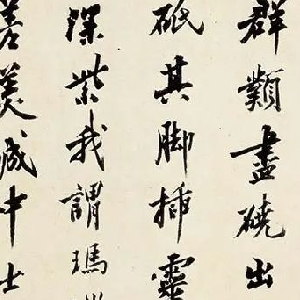 群類盡磽出
砥其脚插靈
深紫我謂瑪
善美成中士